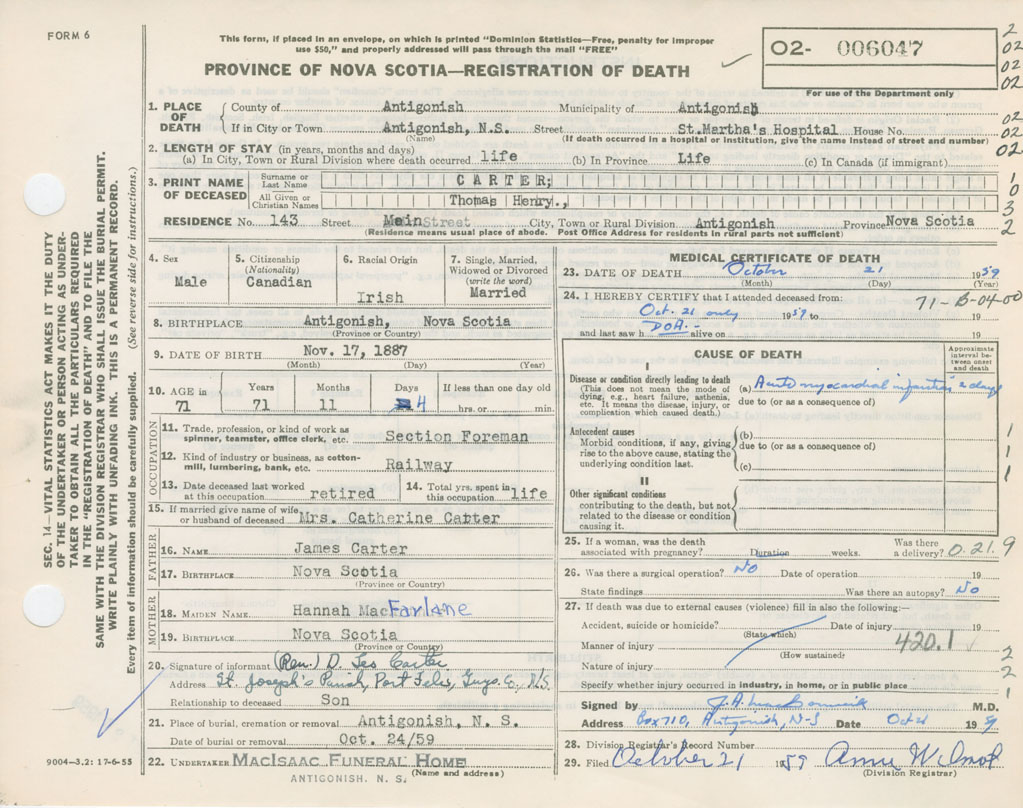 FORM 6
This form, if placed in an envelope, on which is printed "Dominion Statistics—Free, penalty for improper
use $50," and properly addressed will pass through the mail "FREE"
PROVINCE OF NOVA SCOTIA—REGISTRATION OF DEATH
02- 006047
For use of the Department only
1. PLACE OF DEATH { County of Antigonish Municipality of Antigonish
If in City or Town Antigonish, N.S. Street St.Martha's Hospital House No.
(Name) (If death occurred in a hospital or institution, give the name instead of street and number)
2. LENGTH OF STAY (in years, months and days)
(a) In City, Town or Rural Division where death occurred life (b) In Province Life (c) In Canada (if immigrant)
3. PRINT NAME OF DECEASED
Surname or Last Name CARTER;
All Given or Christian Names Thomas Henry.,
RESIDENCE No. 143 Street Main Street City, Town or Rural Division Antigonish Province Nova Scotia
(Residence means usual place of abode. Post Office Address for residents in rural parts not sufficient)
4. Sex Male
5. Citizenship (Nationality) Canadian
6. Racial Origin Irish
7. Single, Married, Widowed or Divorced (write the word) Married
8. BIRTHPLACE Antigonish, Nova Scotia
(Province or Country)
9. DATE OF BIRTH Nov. 17, 1887
(Month) (Day) (Year)
10. AGE in Years Months Days If less than one day old
71 71 11 4 hrs. or min.
OCCUPATION
11. Trade, profession, or kind of work as spinner, teamster, office clerk, etc. Section Foreman
12. Kind of industry or business, as cotton-mill, lumbering, bank, etc. Railway
13. Date deceased last worked at this occupation retired
14. Total yrs. spent in this occupation life
15. If married give name of wife or husband of deceased Mrs. Catherine Carter
FATHER
16. NAME James Carter
17. BIRTHPLACE Nova Scotia
(Province or Country)
MOTHER
18. MAIDEN NAME Hannah MacFarlane
19. BIRTHPLACE Nova Scotia
(Province or Country)
20. Signature of informant (Rev.) D. Leo Carter
Address St. Joseph's Parish, Port Felix, Guys. Co., N.S.
Relationship to deceased Son
21. Place of burial, cremation or removal Antigonish, N. S.
Date of burial or removal Oct. 24/59
22. UNDERTAKER MACISAAC FUNERAL HOME
ANTIGONISH, N. S. (Name and address)
MEDICAL CERTIFICATE OF DEATH
23. DATE OF DEATH October 21 1959
(Month) (Day) (Year)
24. I HEREBY CERTIFY that I attended deceased from: 71-B-04-00
Oct. 21 only 1959 to
and last saw h DOA.- alive on 19
CAUSE OF DEATH
Approximate interval between onset and death
I
Disease or condition directly leading to death (a) Acute myocardial infarction 2 days
(This does not mean the mode of dying, e.g., heart failure, asthenia, etc. It means the disease, injury, or complication which caused death.)
due to (or as a consequence of)
Antecedent causes
Morbid conditions, if any, giving rise to the above cause, stating the underlying condition last.
(b)
due to (or as a consequence of)
(c)
II
Other significant conditions
contributing to the death, but not related to the disease or condition causing it.
25. If a woman, was the death associated with pregnancy? Duration weeks. Was there a delivery? 0.21.9
26. Was there a surgical operation? No Date of operation 19
State findings Was there an autopsy? No
27. If death was due to external causes (violence) fill in also the following:—
Accident, suicide or homicide? Date of injury 19
(State which)
Manner of injury 420.1
(How sustained)
Nature of injury
Specify whether injury occurred in industry, in home, or in public place
Signed by J.A. MacCormick M.D.
Address Box 710, Antigonish, N-S Date Oct 21 1959
28. Division Registrar's Record Number
29. Filed October 21 1959
(Division Registrar)
SEC. 14—VITAL STATISTICS ACT MAKES IT THE DUTY
OF THE UNDERTAKER OR PERSON ACTING AS UNDER-
TAKER TO OBTAIN ALL THE PARTICULARS REQUIRED
IN THE "REGISTRATION OF DEATH" AND TO FILE THE
SAME WITH THE DIVISION REGISTRAR WHO SHALL ISSUE THE BURIAL PERMIT.
WRITE PLAINLY WITH UNFADING INK. THIS IS A PERMANENT RECORD.
Every item of information should be carefully supplied. (See reverse side for instructions.)
9004—3.2: 17-6-55
2
02
02
02
02
02
02
1
0
3
2
2
1
1
1
2
2
1